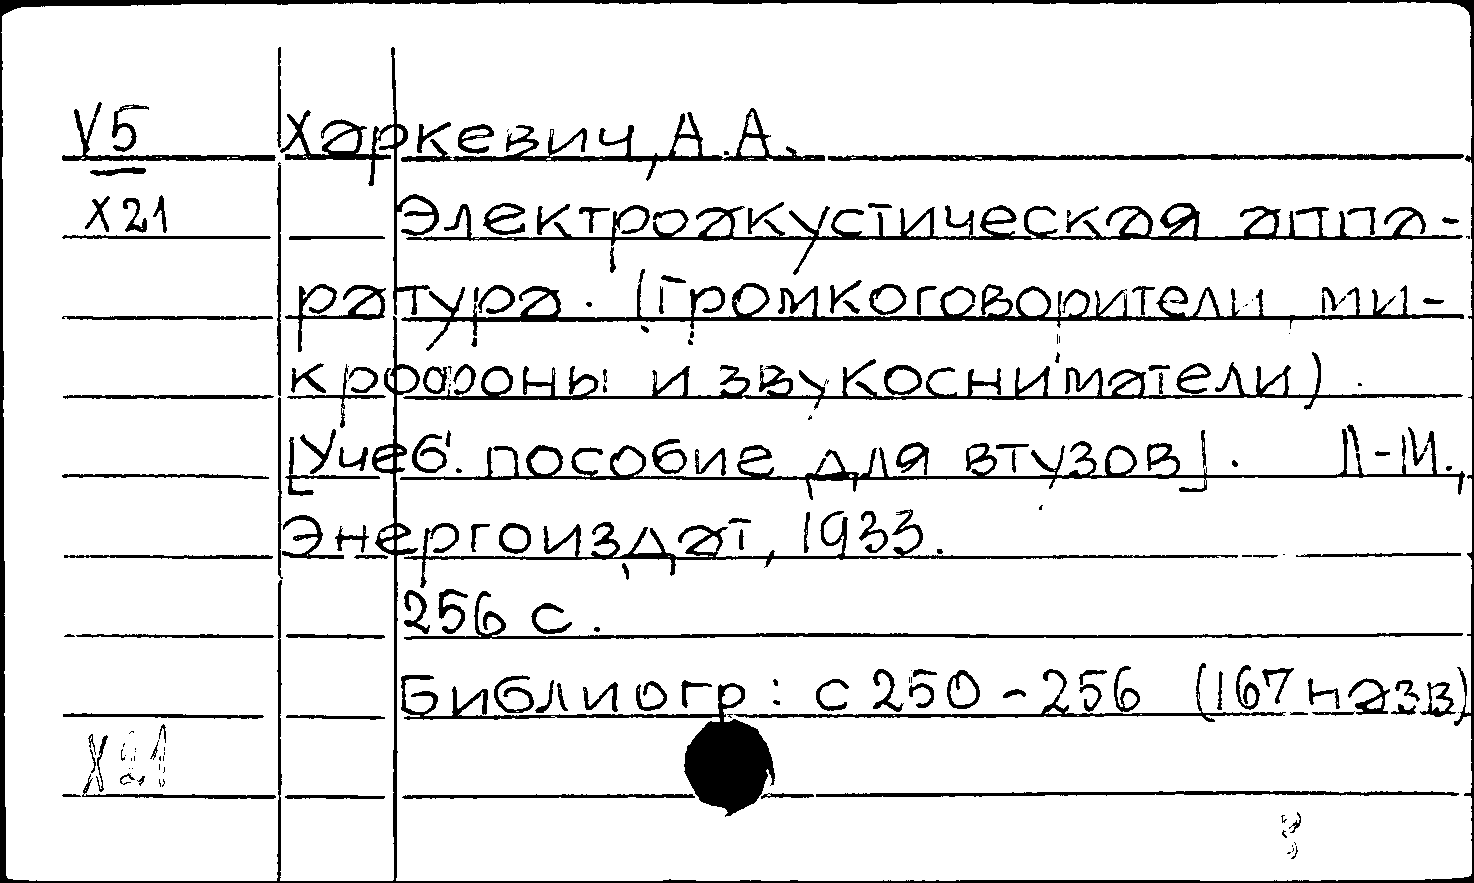 V5 Харкевич, А.А.
Х21 Электроакустическая аппа-
ратура. (Громкоговорители, ми-
крофоны и звукосниматели).
[Учеб. пособие для втузов]. Л-М.,
Энергоиздат, 1933.
256 с.
Библиогр: с 250-256 (167 назв)
Х21